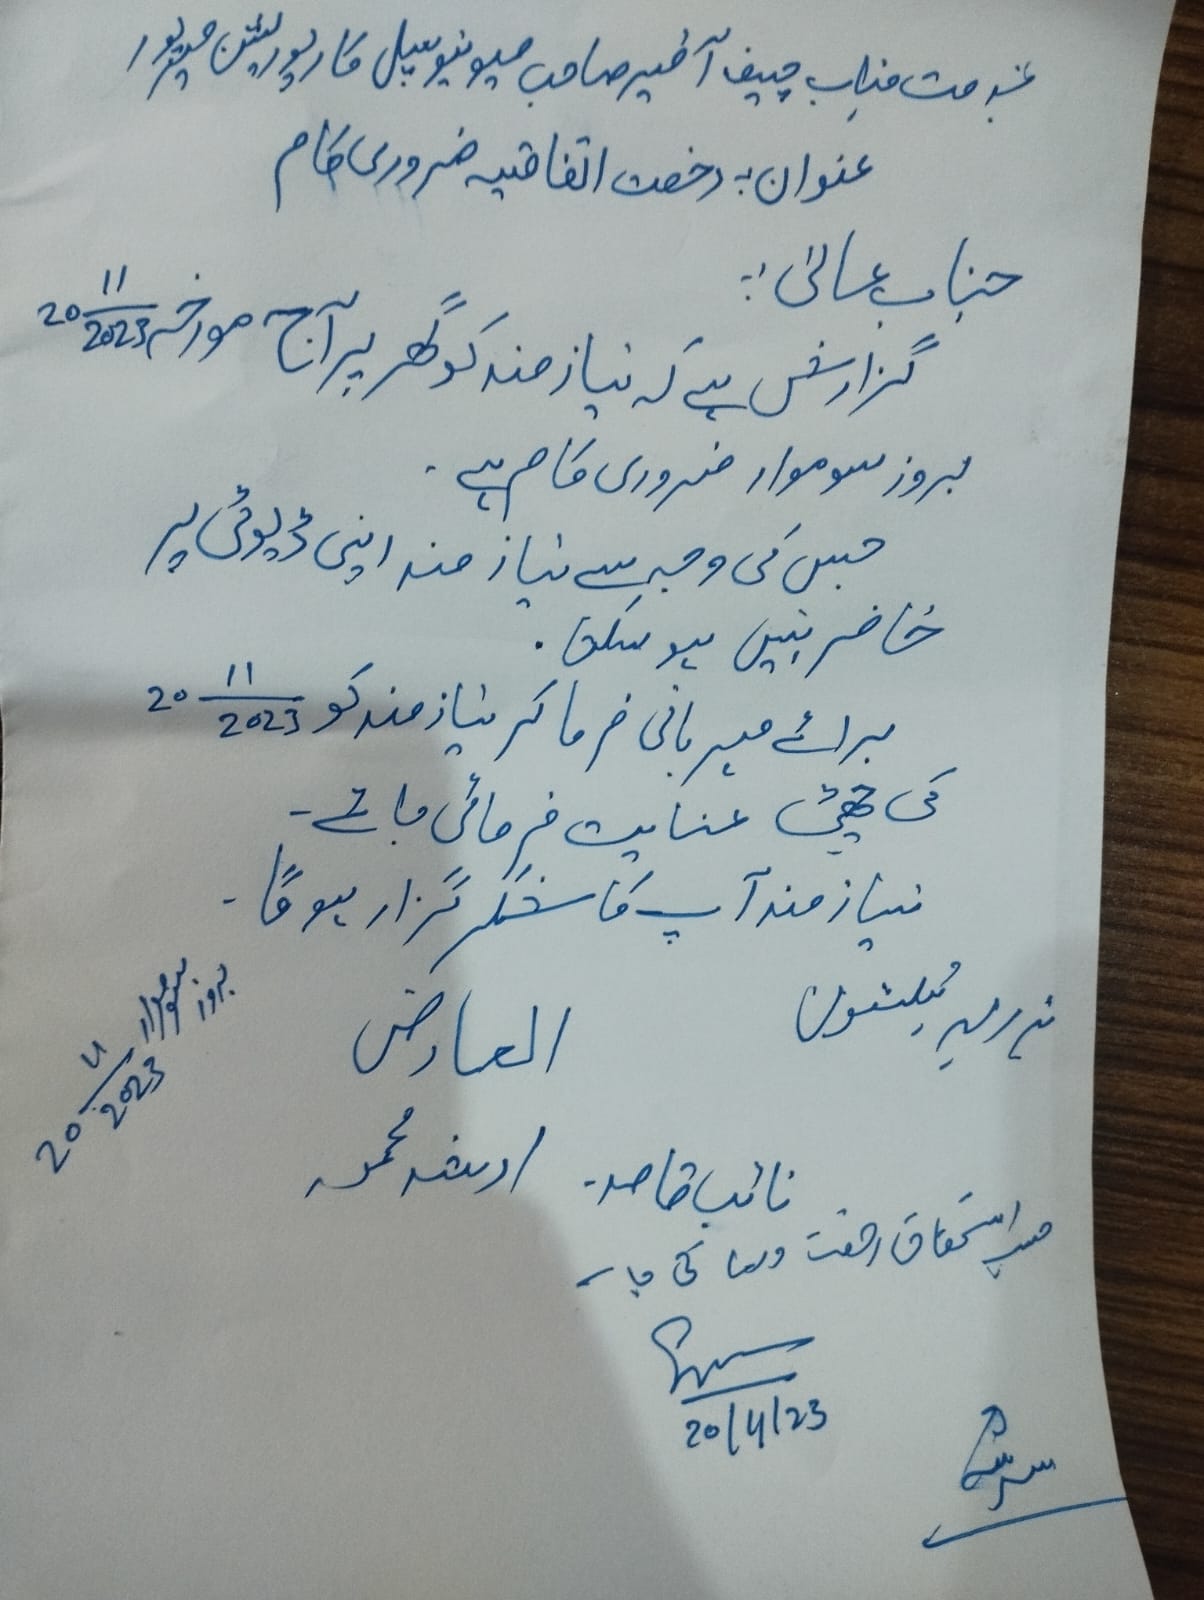 بخدمت جناب چیف آفیسر صاحب میونسپل کارپوریشن میرپور
عنوان :۔ رخصت اتفاقیہ ضروری کام
جناب عالیٰ :۔
گزارش ہے کہ نیاز مند کو گھر پر آج مورخہ 20 11/2023
بروز سوموار ضروری کام ہے ۔
جس کی وجہ سے نیاز مند اپنی ڈیوٹی پر
حاضر نہیں ہو سکتا ۔
برائے مہربانی فرما کر نیاز مند کو 20 11/2023
کی چھٹی عنایت فرمائی جائے ۔
نیاز مند آپ کا شکر گزار ہو گا ۔
بذریعہ
العارض
بروز سوموار
20 11/2023
نائب قاصد ۔ ارشد محمد
حسب استحقاق رخصت کی جائے
20/11/23